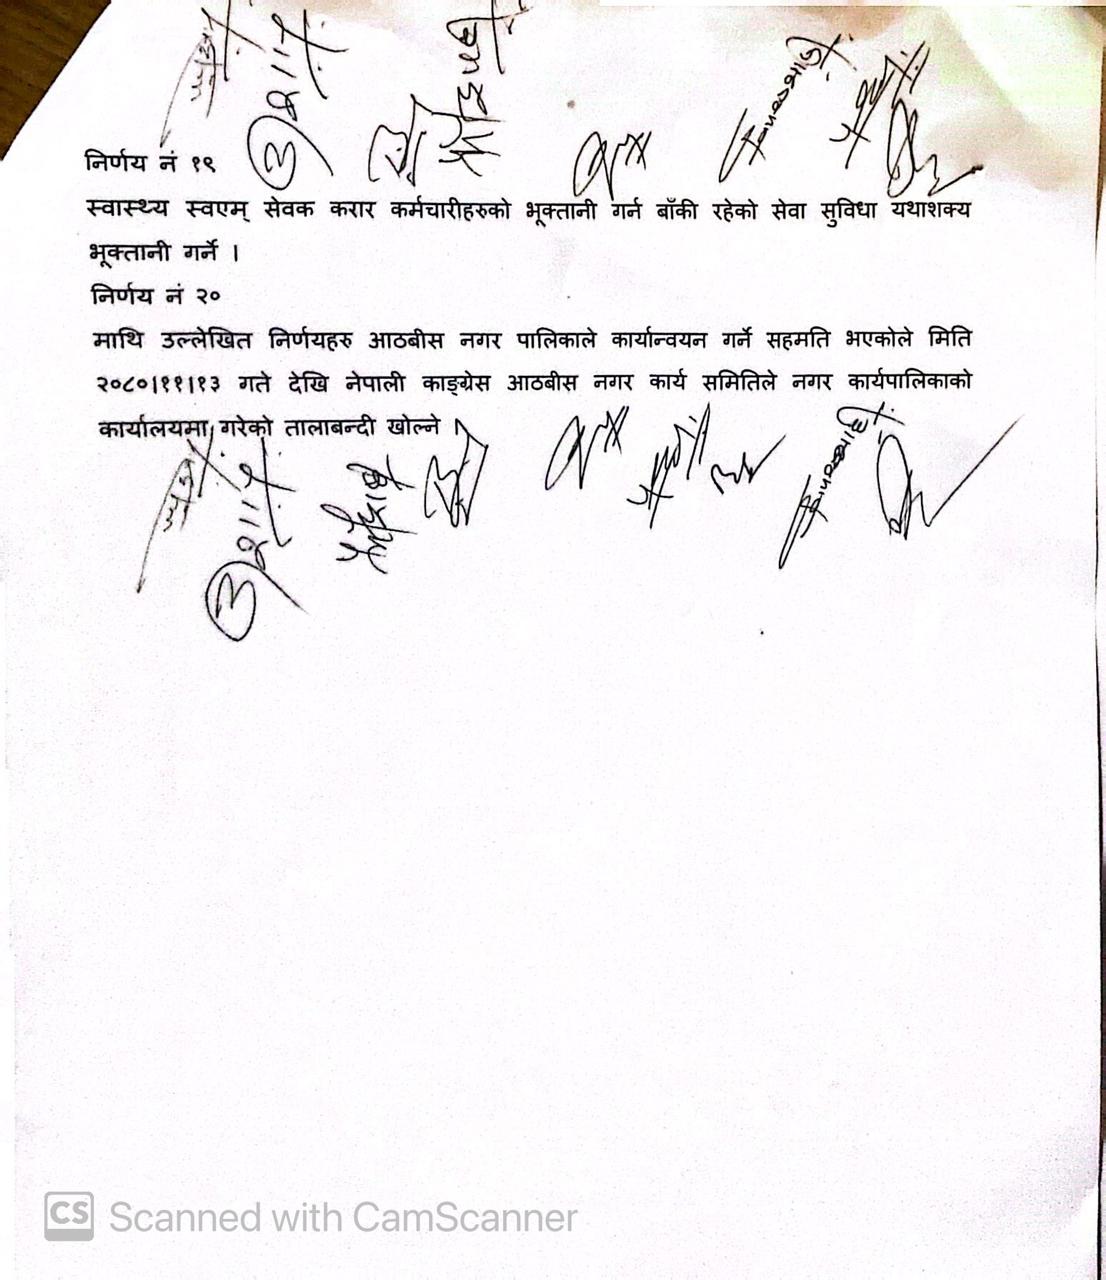 निर्णय नं १९
स्वास्थ्य स्वएम् सेवक करार कर्मचारीहरुको भूक्तानी गर्न बाँकी रहेको सेवा सुविधा यथाशक्य
भूक्तानी गर्ने ।
निर्णय नं २०
माथि उल्लेखित निर्णयहरु आठबीस नगर पालिकाले कार्यान्वयन गर्ने सहमति भएकोले मिति
२०८०|११|१३ गते देखि नेपाली काङ्ग्रेस आठबीस नगर कार्य समितिले नगर कार्यपालिकाको
कार्यालयमा गरेको तालाबन्दी खोल्ने ।
CS Scanned with CamScanner